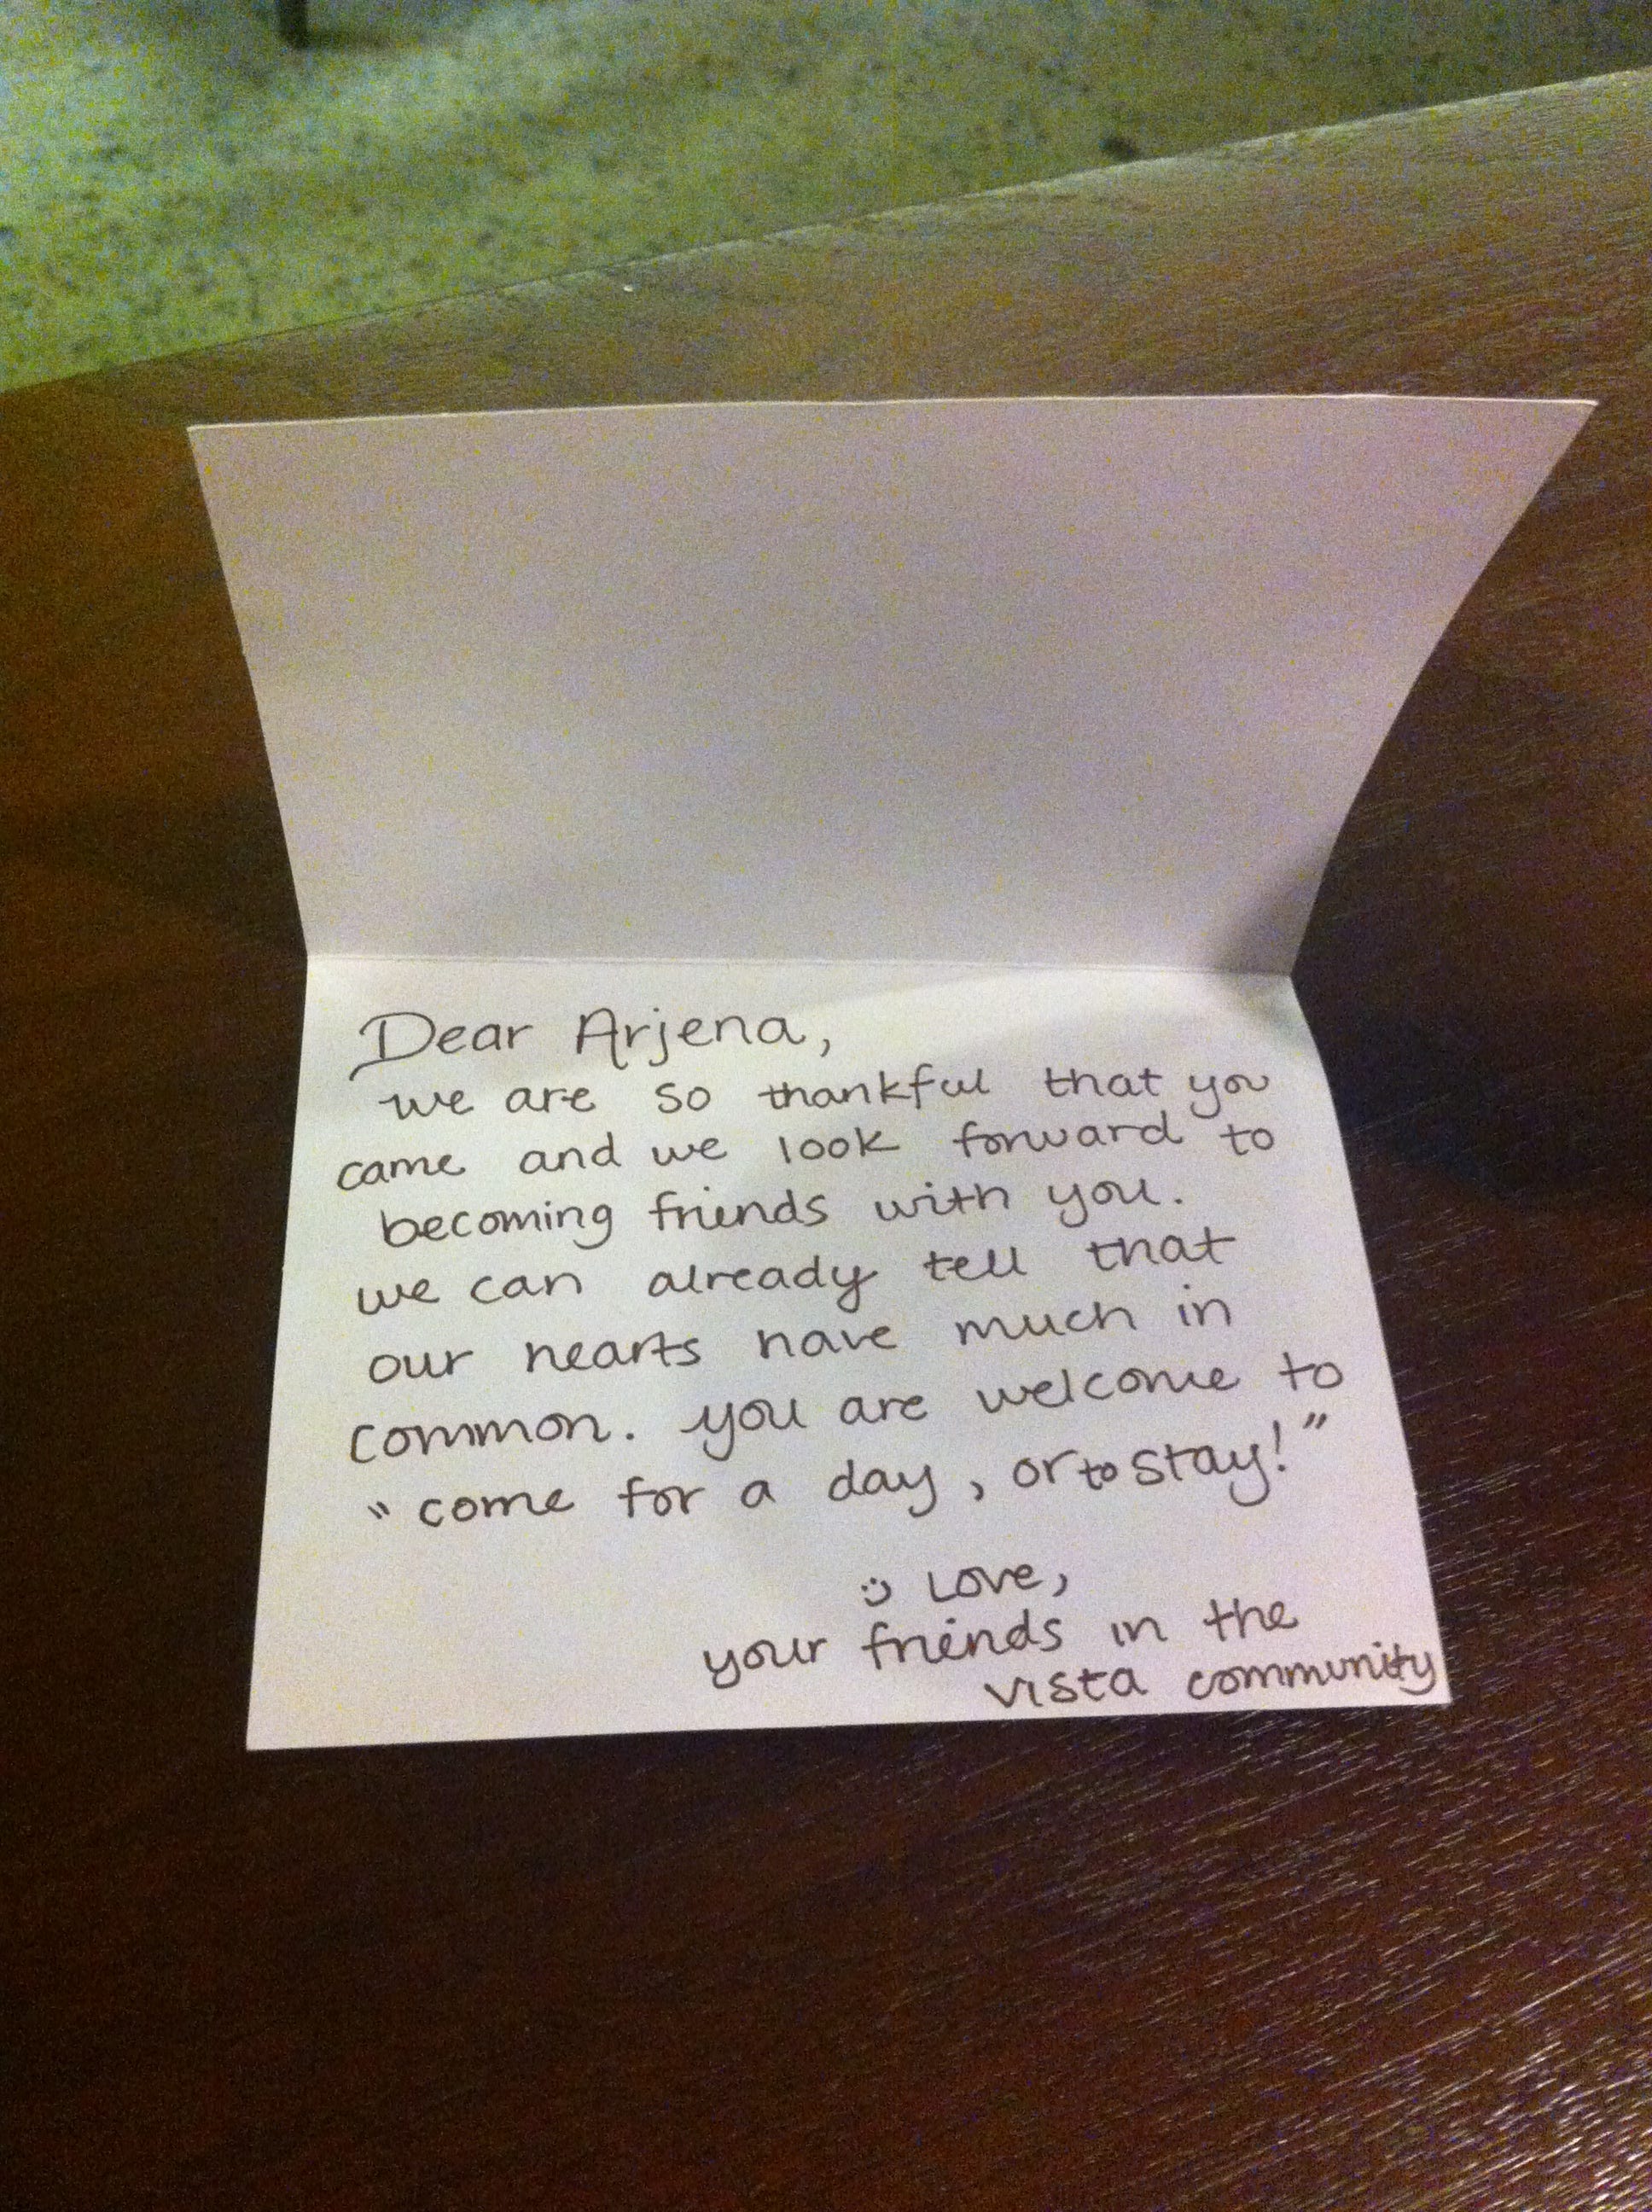 Dear Arjena,
we are so thankful that you
came and we look forward to
becoming friends with you.
we can already tell that
our hearts have much in
common. you are welcome to
"come for a day, or to stay!"
:) Love,
your friends in the
vista community